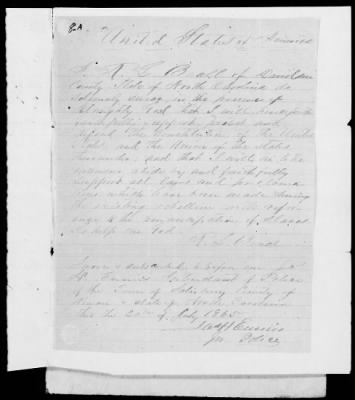 United States of America
I, R. L. Beall of Davidson
County State of North Carolina do
solemnly swear in the presence of
Almighty God that I will henceforth
faithfully support, protect and
defend the Constitution of the United
States and the Union of the States
thereunder, and that I will in like
manner abide by and faithfully
support all laws and proclama
tions which have been made during
the existing rebellion with refer
ence to the emancipation of slaves
So help me God
R. L. Beall
Sworn & subscribed before me
of Police
of the Town of Salisbury County of
Rowan & State of North Carolina
this the 20th of July 1865
Police